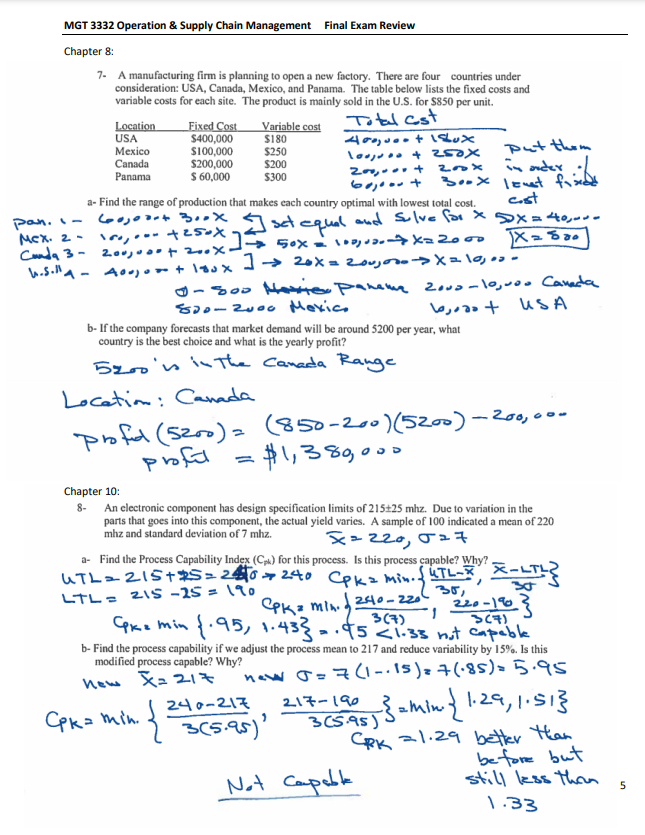 MGT 3332 Operation & Supply Chain Management Final Exam Review
Chapter 8:
7- A manufacturing firm is planning to open a new factory. There are four countries under
consideration: USA, Canada, Mexico, and Panama. The table below lists the fixed costs and
variable costs for each site. The product is mainly sold in the U.S. for $850 per unit.
Total Cost
Location Fixed Cost Variable cost
USA $400,000 $180 400,000 + 180X
Mexico $100,000 $250 100,000 + 250X
Canada $200,000 $200 200,000 + 200X
Panama $ 60,000 $300 60,000 + 300X
put them
in order of
least fixed
cost
a- Find the range of production that makes each country optimal with lowest total cost.
Pan. 1 - 60,000 + 300X set equal and solve for X 50X = 40,000
Mex. 2 - 100,000 + 250X → 50X = 100,000 → X = 2000 X = 800
Canda 3 - 200,000 + 200X
U.S.A 4 - 400,000 + 180X → 20X = 200,000 → X = 10,000
0 - 800 Panama 2000 - 10,000 Canada
800 - 2000 Mexico 10,000 + USA
b- If the company forecasts that market demand will be around 5200 per year, what
country is the best choice and what is the yearly profit?
5200 is in The Canada Range
Location: Canada
profit (5200) = (850-200)(5200) - 200,000
profit = $1,380,000
Chapter 10:
8- An electronic component has design specification limits of 215±25 mhz. Due to variation in the
parts that goes into this component, the actual yield varies. A sample of 100 indicated a mean of 220
mhz and standard deviation of 7 mhz.
X̄ = 220, σ = 7
a- Find the Process Capability Index (Cpk) for this process. Is this process capable? Why?
UTL = 215 + 25 = 240 → 240 Cpk = min. { UTL-X̄ / 3σ, X̄-LTL / 3σ }
LTL = 215 - 25 = 190
Cpk = min. { 240-220 / 3(7), 220-190 / 3(7) }
Cpk = min { .95, 1.43 } = .95 < 1.33 not capable
b- Find the process capability if we adjust the process mean to 217 and reduce variability by 15%. Is this
modified process capable? Why?
new X̄ = 217 new σ = 7(1-.15) = 7(.85) = 5.95
Cpk = min. { 240-217 / 3(5.95), 217-190 / 3(5.95) } = min { 1.29, 1.51 }
CPK = 1.29 better than
before but
still less than
1.33
Not capable
5